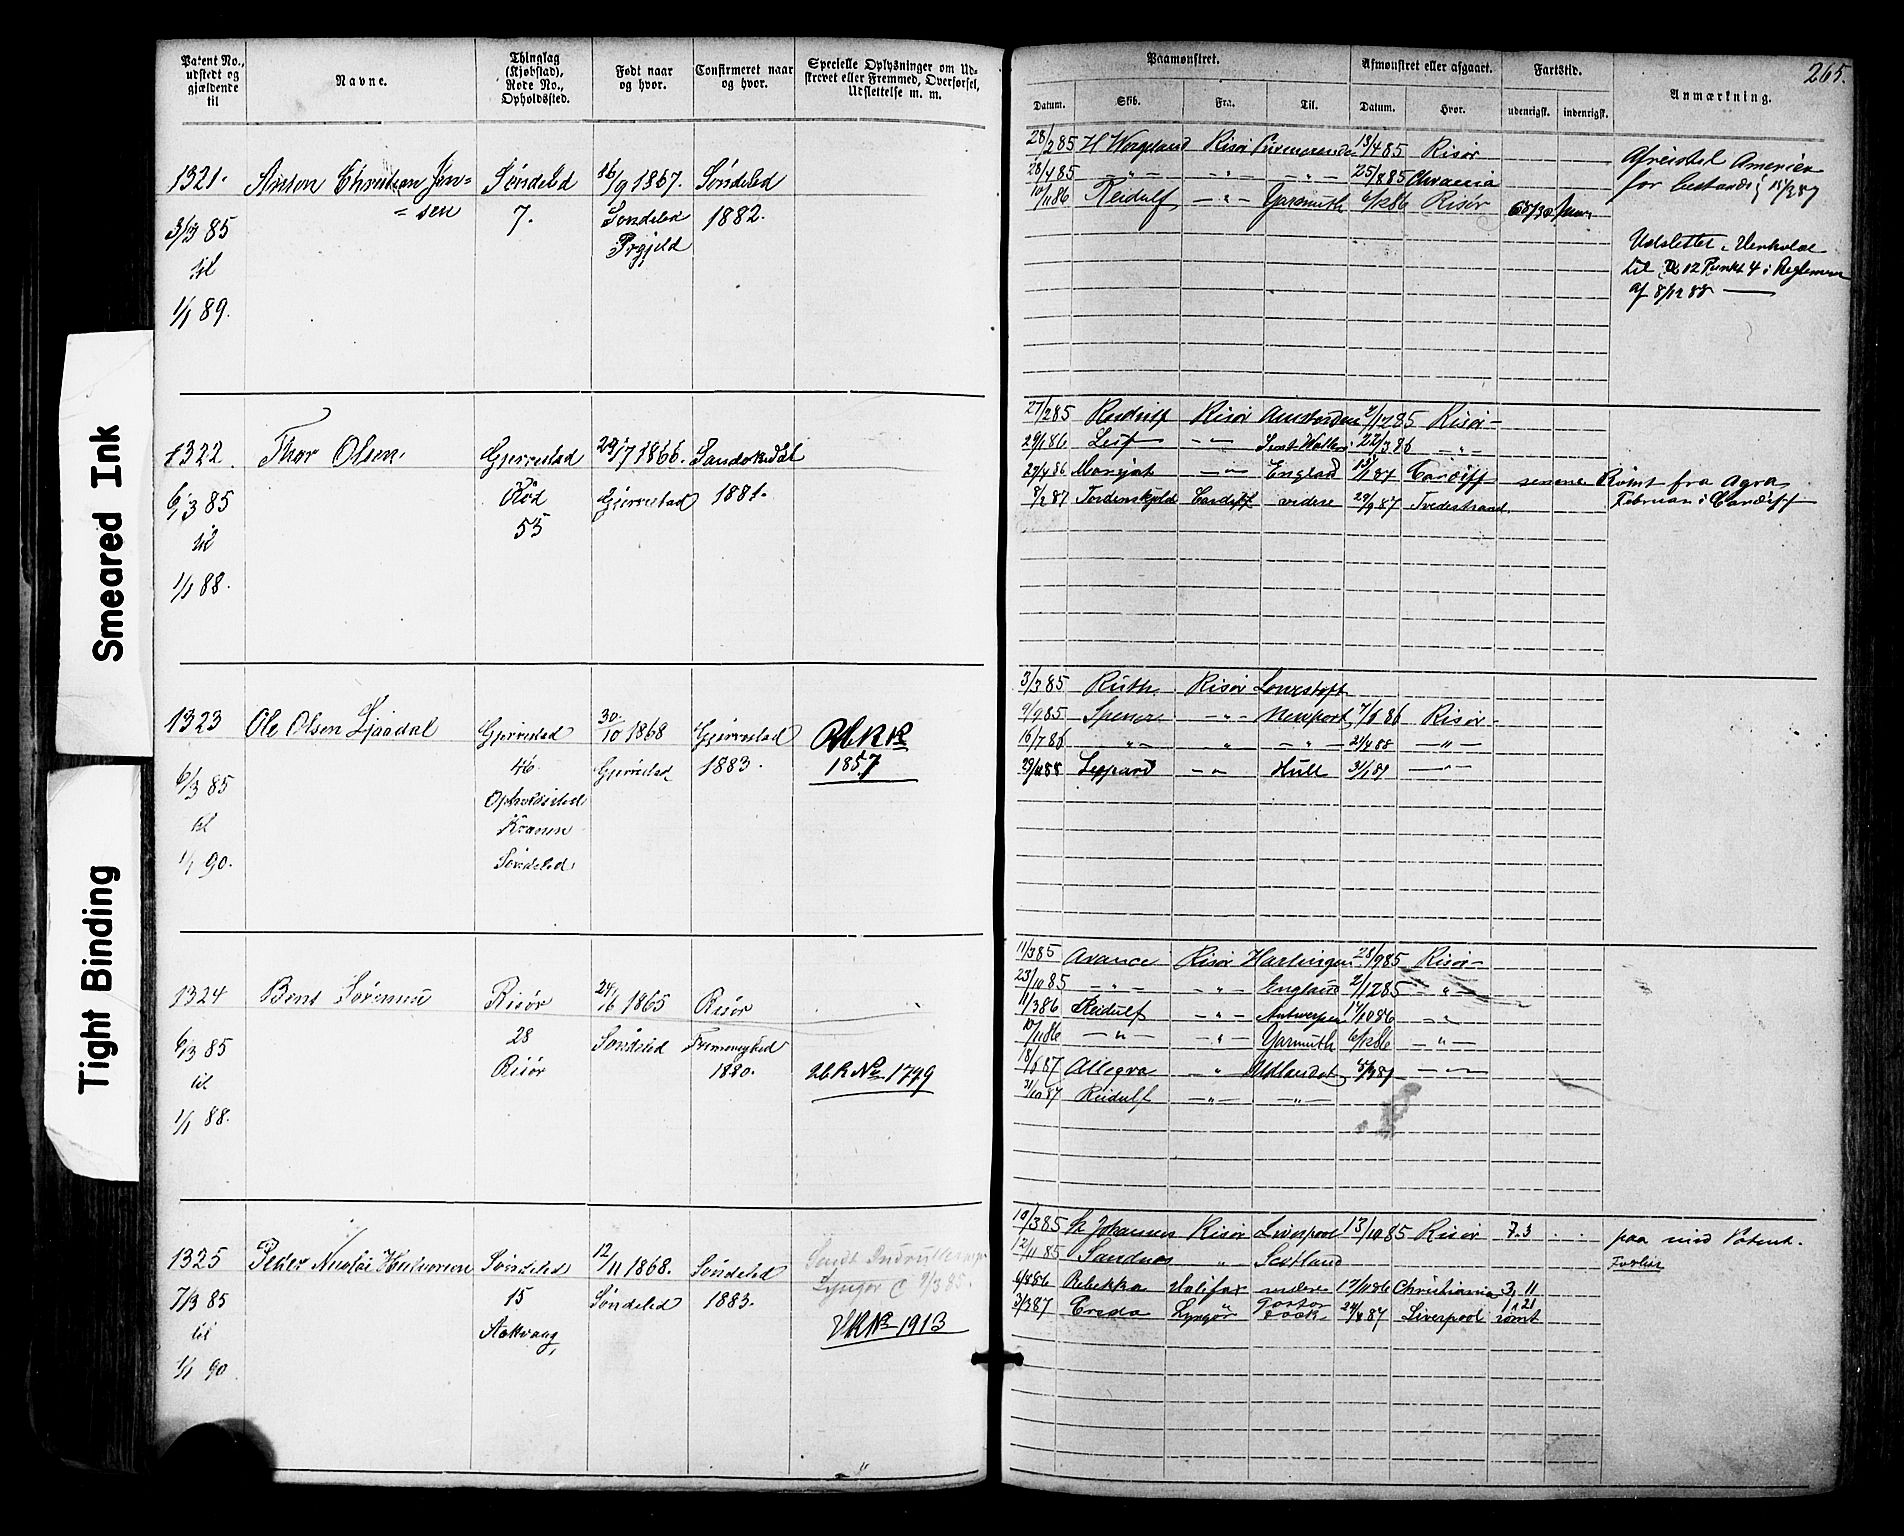 265.
Patent No., udstedt og gjældende til
Navne.
Thinglag (Kjøbstad), Rode No., Opholdssted.
Født naar og hvor.
Confirmeret naar og hvor.
Specielle Oplysninger om Udskrevet eller Fremmed, Overførsel, Udslettelse m. m.
Paamønstret.
Afmønstret eller afgaaet.
Fartstid.
Anmærkning.
Datum. Skib. Fra. Til. Datum. Hvor. udenrigsk. indenrigsk.
1321. Anton Christian Jen= Søndeled 16/9 1867. Søndeled
= sen 7. Søndeled 1882.
3/3 85 Prgjeld
til
1/1 89.
28/2 85 H Wergeland Risør 13/4 85 Risør
28/4 85 - " - - " - - " - 25/8 85 Chrania
10/11 86 Reidulf - " - Yarmuth 6/12 86 Risør
Afreist til America
for bestandig
Udslettet i Henhold
til § 12 Punkt 4 i Reglement
af 8/12 88 —
1322. Thor Olsen. Gjerrestad 24/7 1866. Sandøkedal
6/3 85 Rød Gjerrestad 1881.
til 55
1/1 88.
27/2 85 Reidulf Risør Amsterdam 2/12 85 Risør -
29/1 86 Leif - " - 22/3 86 - " -
29/4 86 Maryat - " - England 13/1 87 Cardiff
8/2 87 Tordenskjold Cardiff videre 28/9 87 Tvedestrand.
Rømt fra Agra
Februar i Cardiff
1323 Ole Olsen Ljaadal Gjerrestad 30/10 1868 Gjerrestad
46. Gjerrestad 1883. 1857
6/3 85 Opholdssted
til Kranen
1/1 90. Søndeled
3/3 85 Ruth Risør Lowestoft
9/9 85 Spencer - " - Newport 7/6 86 Risør -
16/7 86 " - " - " - 21/4 88 - " -
29/10 88 Leopard - " - Hull 3/1 89 - " -
1324 Bent Sørensen Risør 24/6 1865 Risør
6/3 85 28 Søndeled
til Risør 1880. No 1749
1/1 88.
11/3 85 Avance Risør Harlingen 28/9 85 Risør -
23/10 85 - " - - " - England 2/12 85 - " -
11/3 86 Reidulf - " - Antwerpen 14/10 86 - " -
10/11 86 - " - - " - Yarmuth 6/12 86 - " -
18/1 87 Allegra " Udlandet - " -
21/10 87 Reidulf - " - - " -
1325 Peder Nicolai Halvorsen Søndeled 12/11 1868. Søndeled
7/3 85 15 Søndeled 1883.
til Aakvaag,
1/1 90
Lyngør 9/3 85.
1913
10/3 85 St Johannes Risør Liverpool 13/10 85 Risør 7.3
12/11 85 Sandnes " Scotland
6/8 86 Rebekka Halifax videre 17/11 86 Christiania 3, 11
3/3 87 Creda Lyngør 24/4 87 Liverpool rømt
1 . 21
paa med Patent.
Forlist
Smeared Ink
Tight Binding